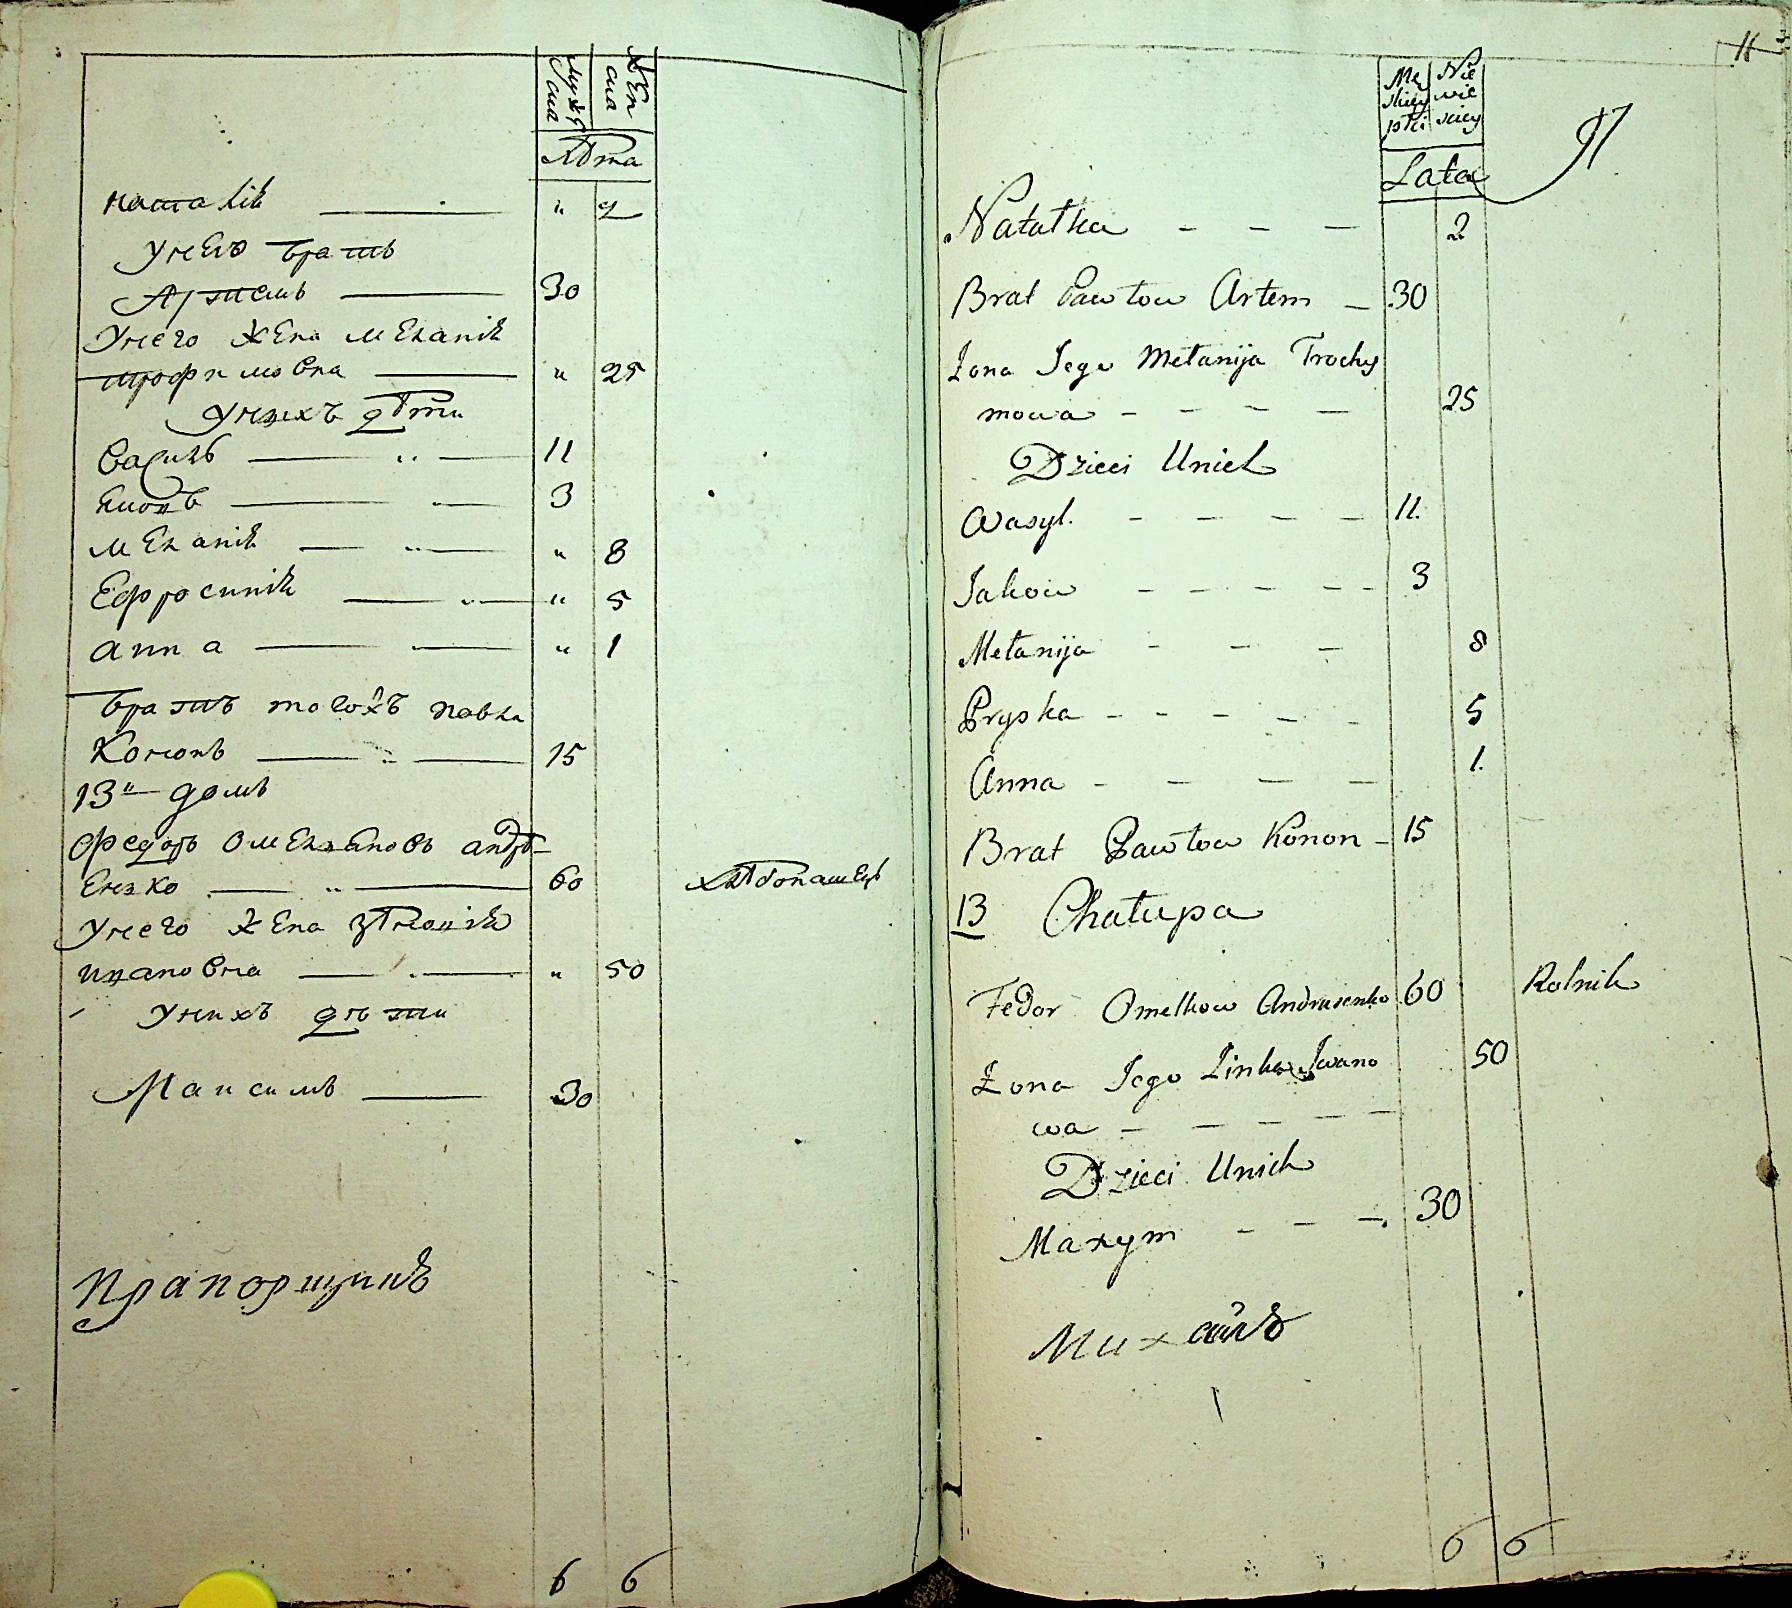 Мужеска
Женска
Лѣта
Наталія — " 2
У него братъ
Артемъ — 30
У него жена Меланія
Трофимовна — " 25
У нихъ дѣти
Василь — " — 11
Яковъ — " — 3
Меланія — " — " 8
Ефросинія — " — " 5
Анна — — " 1
Братъ тогожъ Павла
Кононъ — " — 15
13й домъ
Федоръ Омеляновъ Андрѣ-
енко — " — 60 хлѣбопашецъ
У него жена Зѣновія
Ивановна — " 50
У нихъ дѣти
Максимъ — 30
Прапорщикъ
6 6
11
Męskiey płci
Niewieściey
Lata
Natałka - - - 2
Brat Pawłow Artem - 30
Żona Jego Mełanija Trochy
mowa - - - - 25
Dzieci Unich
Wasyl. - - - - 11.
Jakow - - - - - 3
Mełanija - - - 8
Pryska - - - - - 5
Anna - - - - 1.
Brat Pawłow Konon - 15
13 Chałupa
Fedor Omelkow Andrusenko 60 Rolnik
Żona Jego Zinka Iwano 50
wa - - - - -
Dzieci Unich
Maxym - - - 30
Михайлъ
6 6